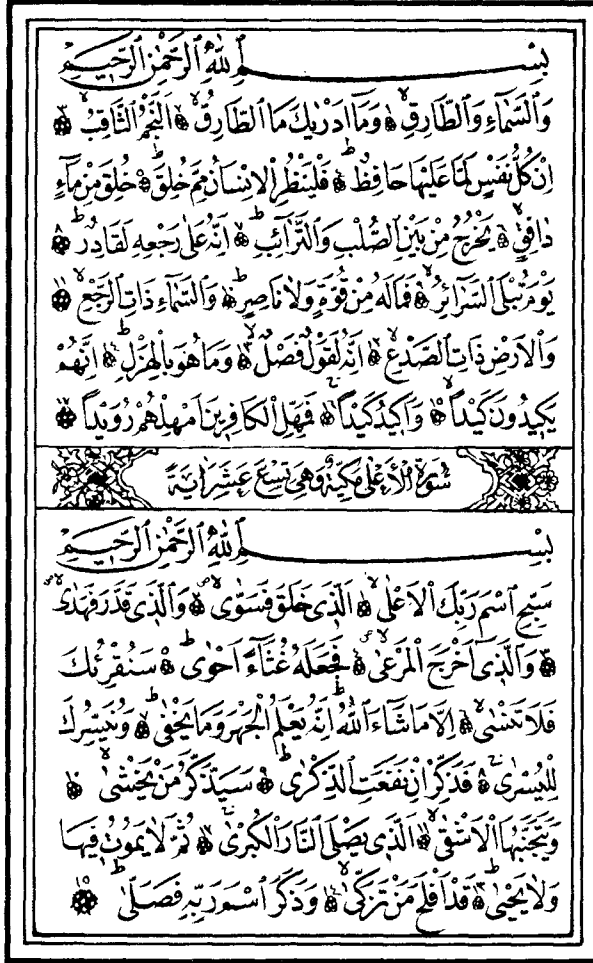 بِسْمِ ٱللّٰهِ ٱلرَّحْمٰنِ ٱلرَّحِيمِ
وَٱلسَّمَآءِ وَٱلطَّارِقِۙ ۝ وَمَآ اَدْرٰيكَ مَا ٱلطَّارِقُۙ ۝ اَلنَّجْمُ ٱلثَّاقِبُۙ ۝
اِنْ كُلُّ نَفْسٍ لَمَّا عَلَيْهَا حَافِظٌۜ ۝ فَلْيَنْظُرِ ٱلْاِنْسَانُ مِمَّ خُلِقَۜ ۝ خُلِقَ مِنْ مَآءٍ
دَافِقٍۙ ۝ يَخْرُجُ مِنْ بَيْنِ ٱلصُّلْبِ وَٱلتَّرَآئِبِۜ ۝ اِنَّهُ عَلٰى رَجْعِهِ لَقَادِرٌۜ ۝
يَوْمَ تُبْلَى ٱلسَّرَآئِرُۙ ۝ فَمَا لَهُ مِنْ قُوَّةٍ وَلَا نَاصِرٍۜ ۝ وَٱلسَّمَآءِ ذَاتِ ٱلرَّجْعِۙ ۝
وَٱلْاَرْضِ ذَاتِ ٱلصَّدْعِۙ ۝ اِنَّهُ لَقَوْلٌ فَصْلٌۙ ۝ وَمَا هُوَ بِٱلْهَزْلِۜ ۝ اِنَّهُمْ
يَكِيدُونَ كَيْداًۙ ۝ وَاَكِيدُ كَيْداًۚ ۝ فَمَهِّلِ ٱلْكَافِرِينَ اَمْهِلْهُمْ رُوَيْداً ۝
سُورَةُ ٱلْاَعْلٰى مَكِّيَّةٌ وَهِيَ تِسْعَ عَشْرَةَ اٰيَةً
بِسْمِ ٱللّٰهِ ٱلرَّحْمٰنِ ٱلرَّحِيمِ
سَبِّحِ ٱسْمَ رَبِّكَ ٱلْاَعْلٰىۙ ۝ اَلَّذِى خَلَقَ فَسَوّٰىۙ ۝ وَٱلَّذِى قَدَّرَ فَهَدٰىۙ
۝ وَٱلَّذِىٓ اَخْرَجَ ٱلْمَرْعٰىۙ ۝ فَجَعَلَهُ غُثَآءً اَحْوٰىۜ ۝ سَنُقْرِئُكَ
فَلَا تَنْسٰىۙ ۝ اِلَّا مَا شَآءَ ٱللّٰهُۜ اِنَّهُ يَعْلَمُ ٱلْجَهْرَ وَمَا يَخْفٰىۜ ۝ وَنُيَسِّرُكَ
لِلْيُسْرٰىۚ ۝ فَذَكِّرْ اِنْ نَفَعَتِ ٱلذِّكْرٰىۜ ۝ سَيَذَّكَّرُ مَنْ يَخْشٰىۙ ۝
وَيَتَجَنَّبُهَا ٱلْاَشْقٰىۙ ۝ اَلَّذِى يَصْلَى ٱلنَّارَ ٱلْكُبْرٰىۚ ۝ ثُمَّ لَا يَمُوتُ فِيهَا
وَلَا يَحْيٰىۜ ۝ قَدْ اَفْلَحَ مَنْ تَزَكّٰىۙ ۝ وَذَكَرَ ٱسْمَ رَبِّهِ فَصَلّٰىۜ ۝